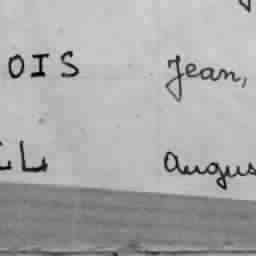 OIS Jean,
LL Augus